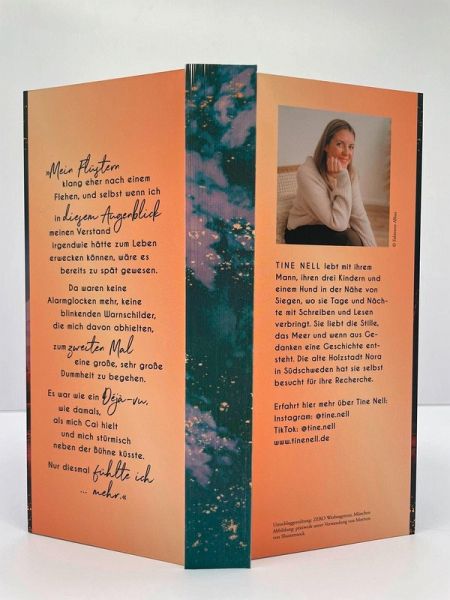 »Mein Flüstern
klang eher nach einem
Flehen, und selbst wenn ich
in diesem Augenblick
meinen Verstand
irgendwie hätte zum Leben
erwecken können, wäre es
bereits zu spät gewesen.
Da waren keine
Alarmglocken mehr, keine
blinkenden Warnschilder,
die mich davon abhielten,
zum zweiten Mal
eine große, sehr große
Dummheit zu begehen.
Es war wie ein Déjà-vu,
wie damals,
als mich Cai hielt
und mich stürmisch
neben der Bühne küsste.
Nur diesmal fühlte ich
... mehr.«
TINE NELL lebt mit ihrem
Mann, ihren drei Kindern und
einem Hund in der Nähe von
Siegen, wo sie Tage und Näch-
te mit Schreiben und Lesen
verbringt. Sie liebt die Stille,
das Meer und wenn aus Ge-
danken eine Geschichte ent-
steht. Die alte Holzstadt Nora
in Südschweden hat sie selbst
besucht für ihre Recherche.
Erfahrt hier mehr über Tine Nell:
Instagram: @tine.nell
TikTok: @tine.nell
www.tinenell.de
Umschlaggestaltung: ZERO Werbeagentur, München
Abbildung: privat unter Verwendung von Motiven
von Shutterstock